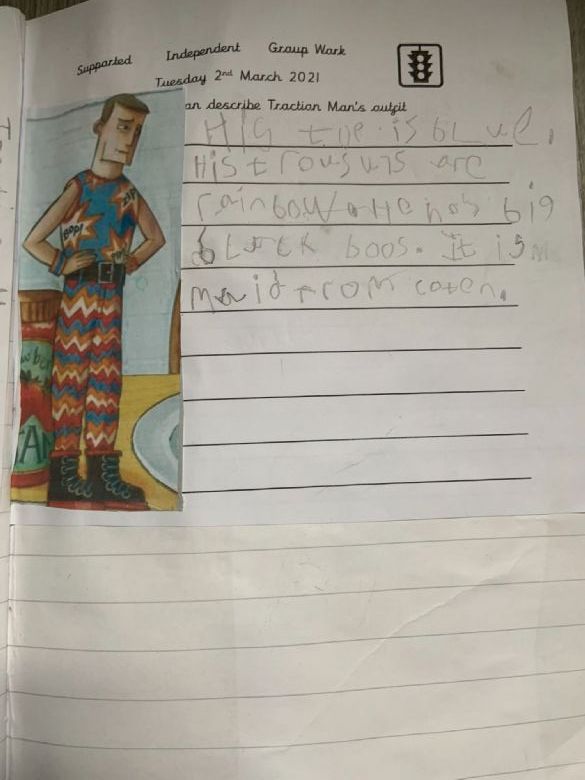 Supported Independent Group Work
Tuesday 2nd March 2021
an describe Traction Man's outfit
His tipe is blue.
His trousurs are
rainbow. He has big
black boos. It is
maid from coten.
BOP!
ZIP